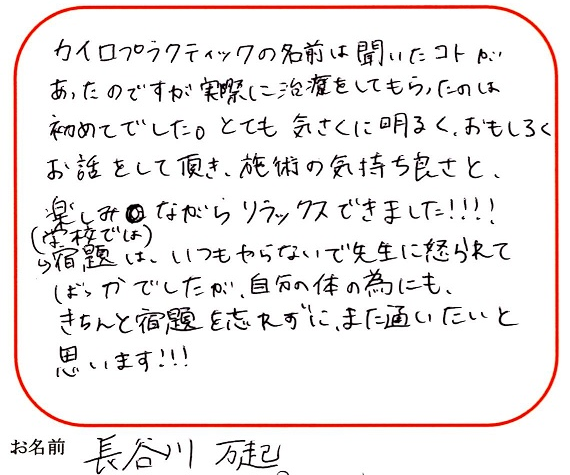 カイロプラクティックの名前は聞いたコトが
あったのですが実際に治療をしてもらったのは
初めてでした。とても気さくに明るく、おもしろく
お話をして頂き、施術の気持ち良さと、
楽しみながらリラックスできました!!!!
(学校では)
宿題は、いつもやらないで先生に怒られて
ばっかでしたが、自分の体の為にも、
きちんと宿題を忘れずに、また通いたいと
思います!!!
お名前 長谷川 万起